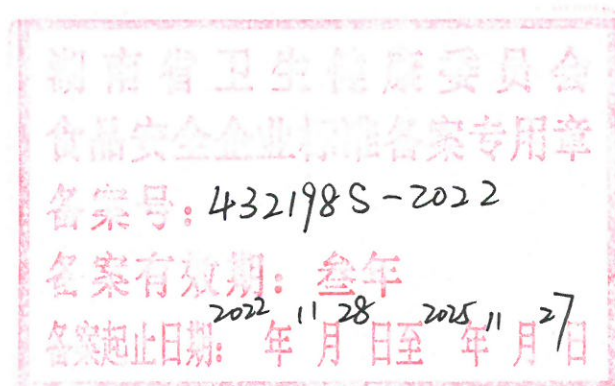 湖南省卫生健康委员会
食品安全企业标准备案专用章
备案号：432198S-2022
备案有效期：叁年
备案起止日期：2022年11月28日至2025年11月27日